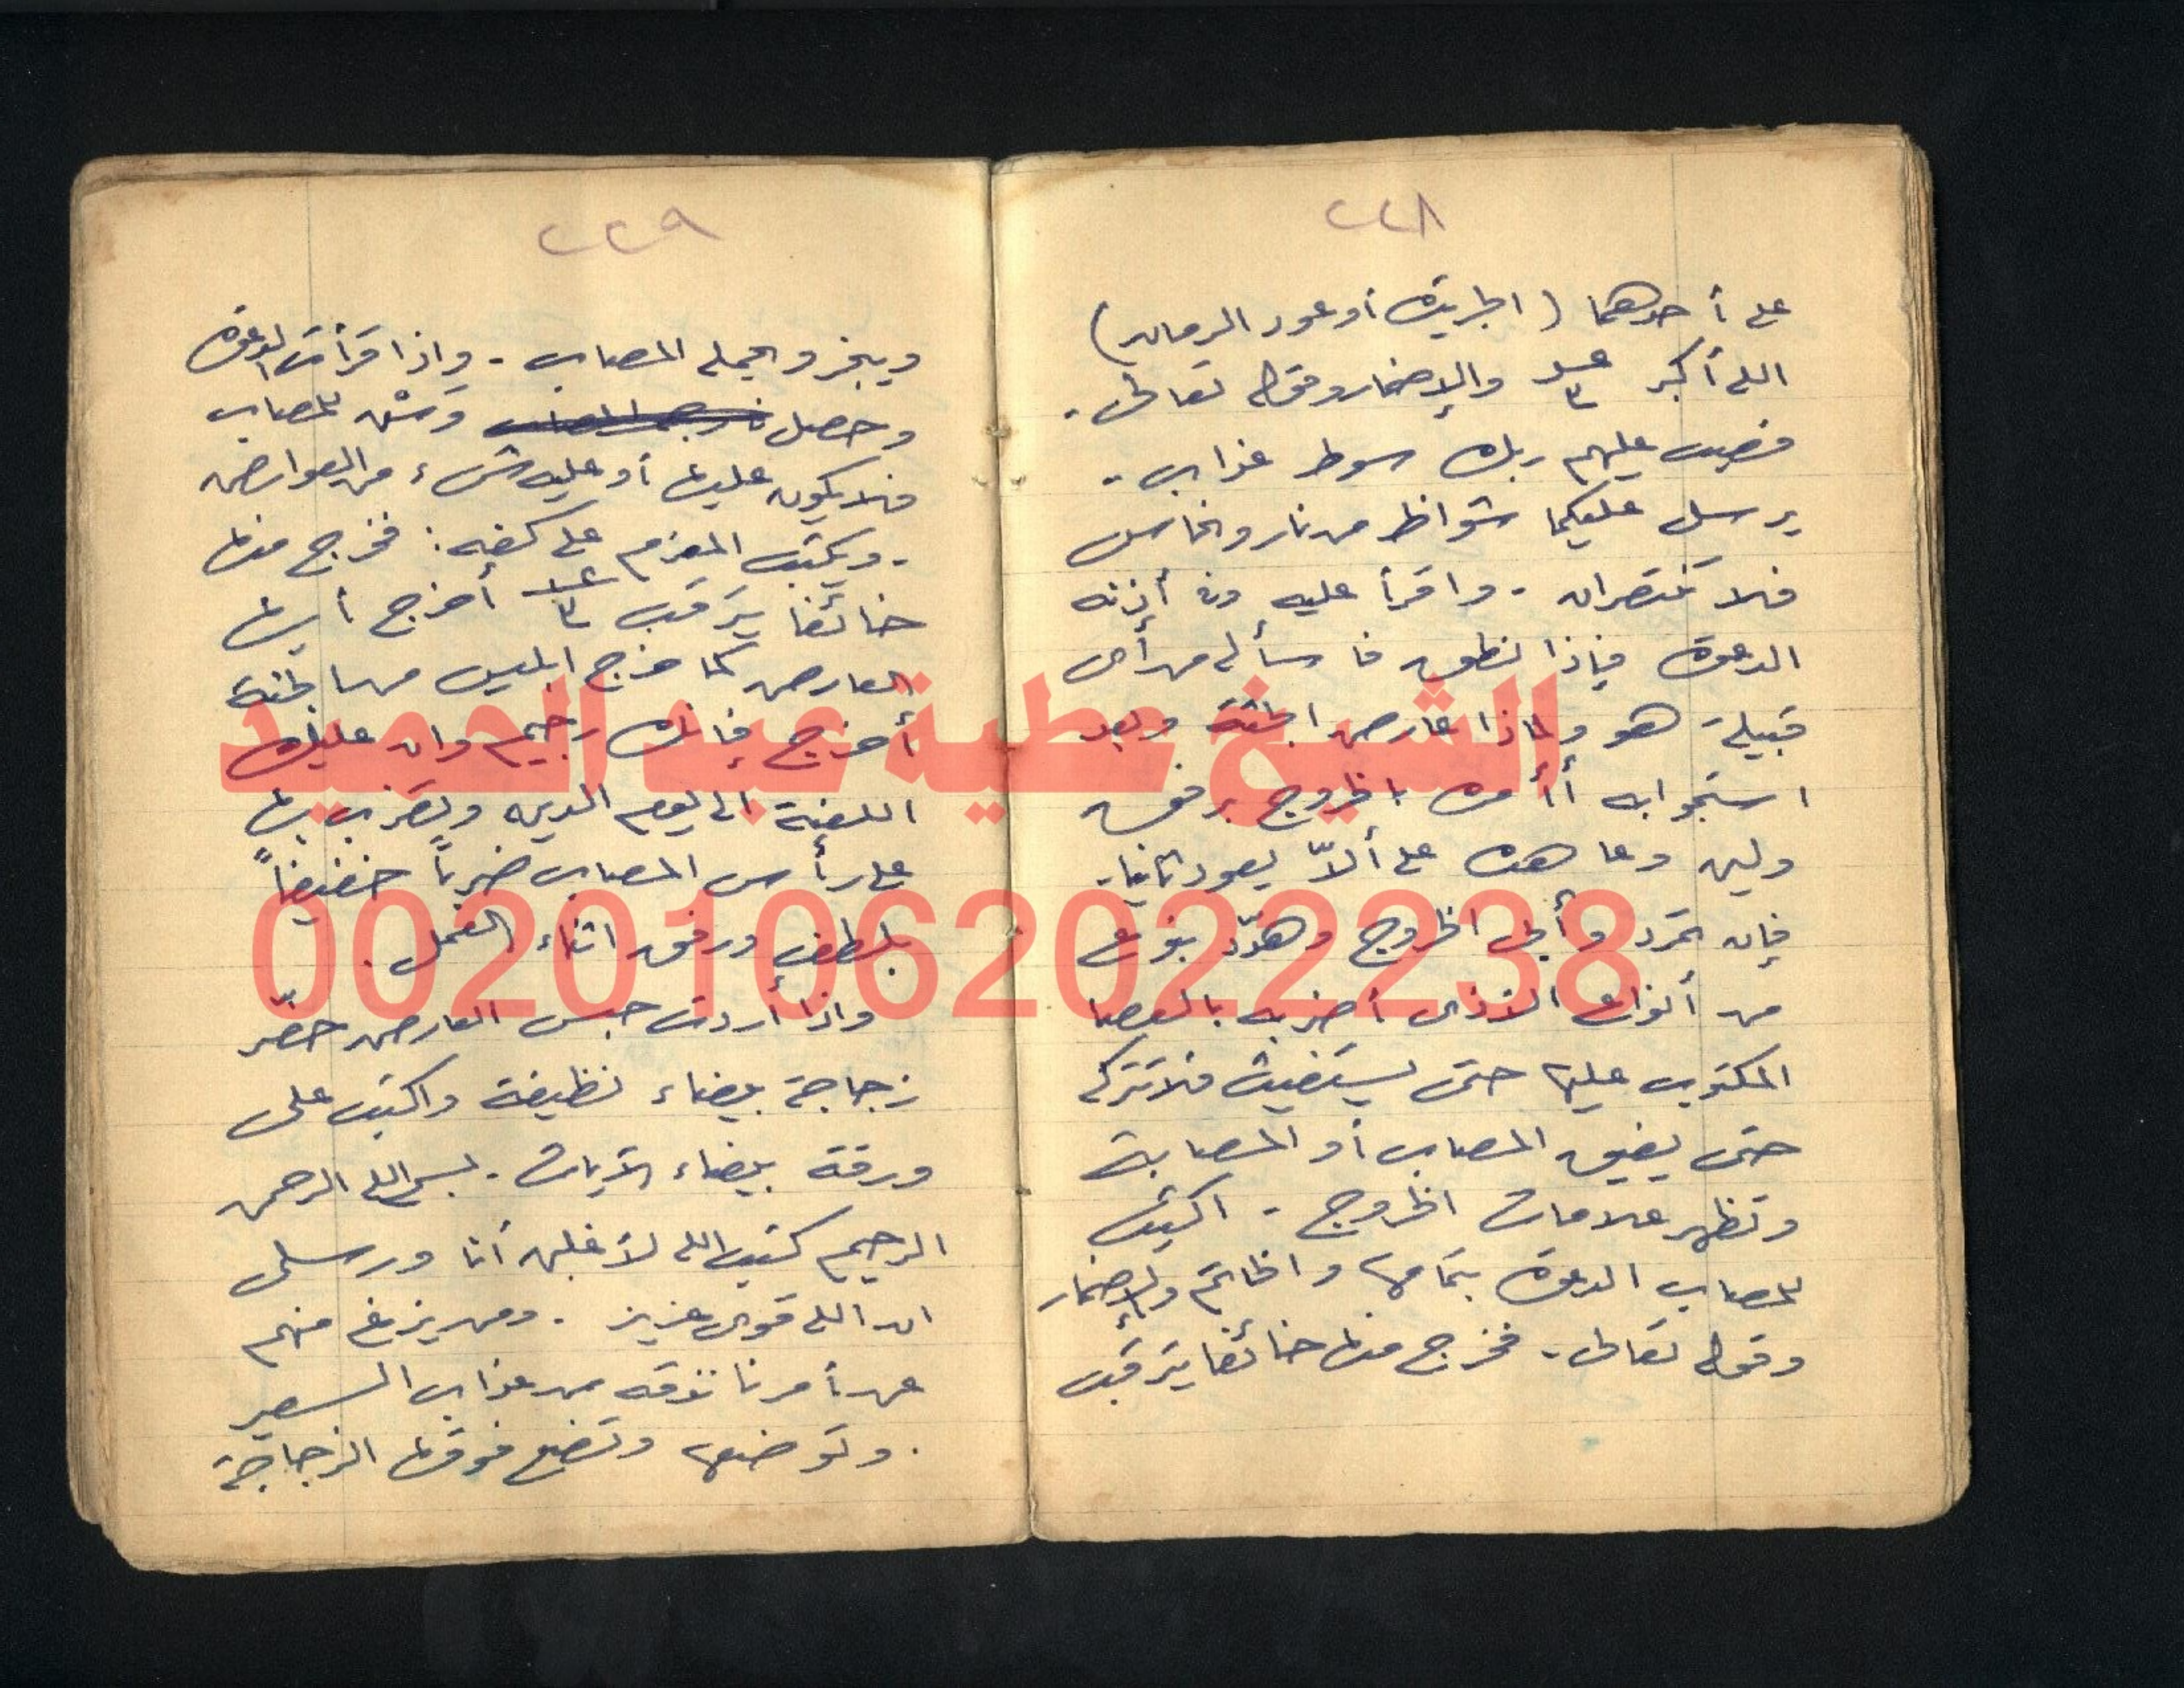 ٢٢٨
على أحدهما (الجريدة أو عود الرمان)
الله أكبر عدد ٣ والإضمار وقوله تعالى.
فصب عليهم ربك سوط عذاب.
يرسل عليكما شواظ من نار ونحاس
فلا تنتصران. واقرأ عليه وفى أذنه
الدعوة فإذا نطق فاسأله من أى
قبيلة هو ولماذا عارض الجثة وبعد
استجوابه أأمره بالخروج برفق
ولين وعاهده على ألاّ يعود ثانيا.
فإن تمرد وأبى الخروج وهدّد بنوع
من أنواع الأذى أضربه بالعصا
المكتوب عليها حتى يستغيث فلا تتركه
حتى يفيق المصاب أو المصابة
وتظهر علامات الخروج. اكتب
للمصاب الدعوة بتمامها والخاتم والإضمار
وقوله تعالى. فخرج منها خائفا يترقب
٢٢٩
ويبخر ويحمله المصاب. وإذا قرأت الدعوة
وحصل للمصاب
فلا يكون عليها أو عليه شىء من العوارض
. ويكتب المعزم على كفه: فخرج منها
خائفا يترقب عدد ٣ أخرج أيها
العارض كما خرج ابليس من الجنة
أخرج فإنك رجيم وان عليك
اللعنة الى يوم الدين وتضرب بها
على رأس المصاب ضرباً خفيفاً
بلطف ورفق اثناء العمل.
واذا أردت حبس العارض حضّر
زجاجة بيضاء نظيفة واكتب على
ورقة بيضاء الآيات. بسم الله الرحمن
الرحيم كتب الله لأغلبن أنا ورسلى
ان الله قوى عزيز. ومن يزغ منهم
عن أمرنا نذقه من عذاب السعير
. وتوضعها وتضع فوقها الزجاجة
الشيخ عطية عبد الحميد
00201062022238